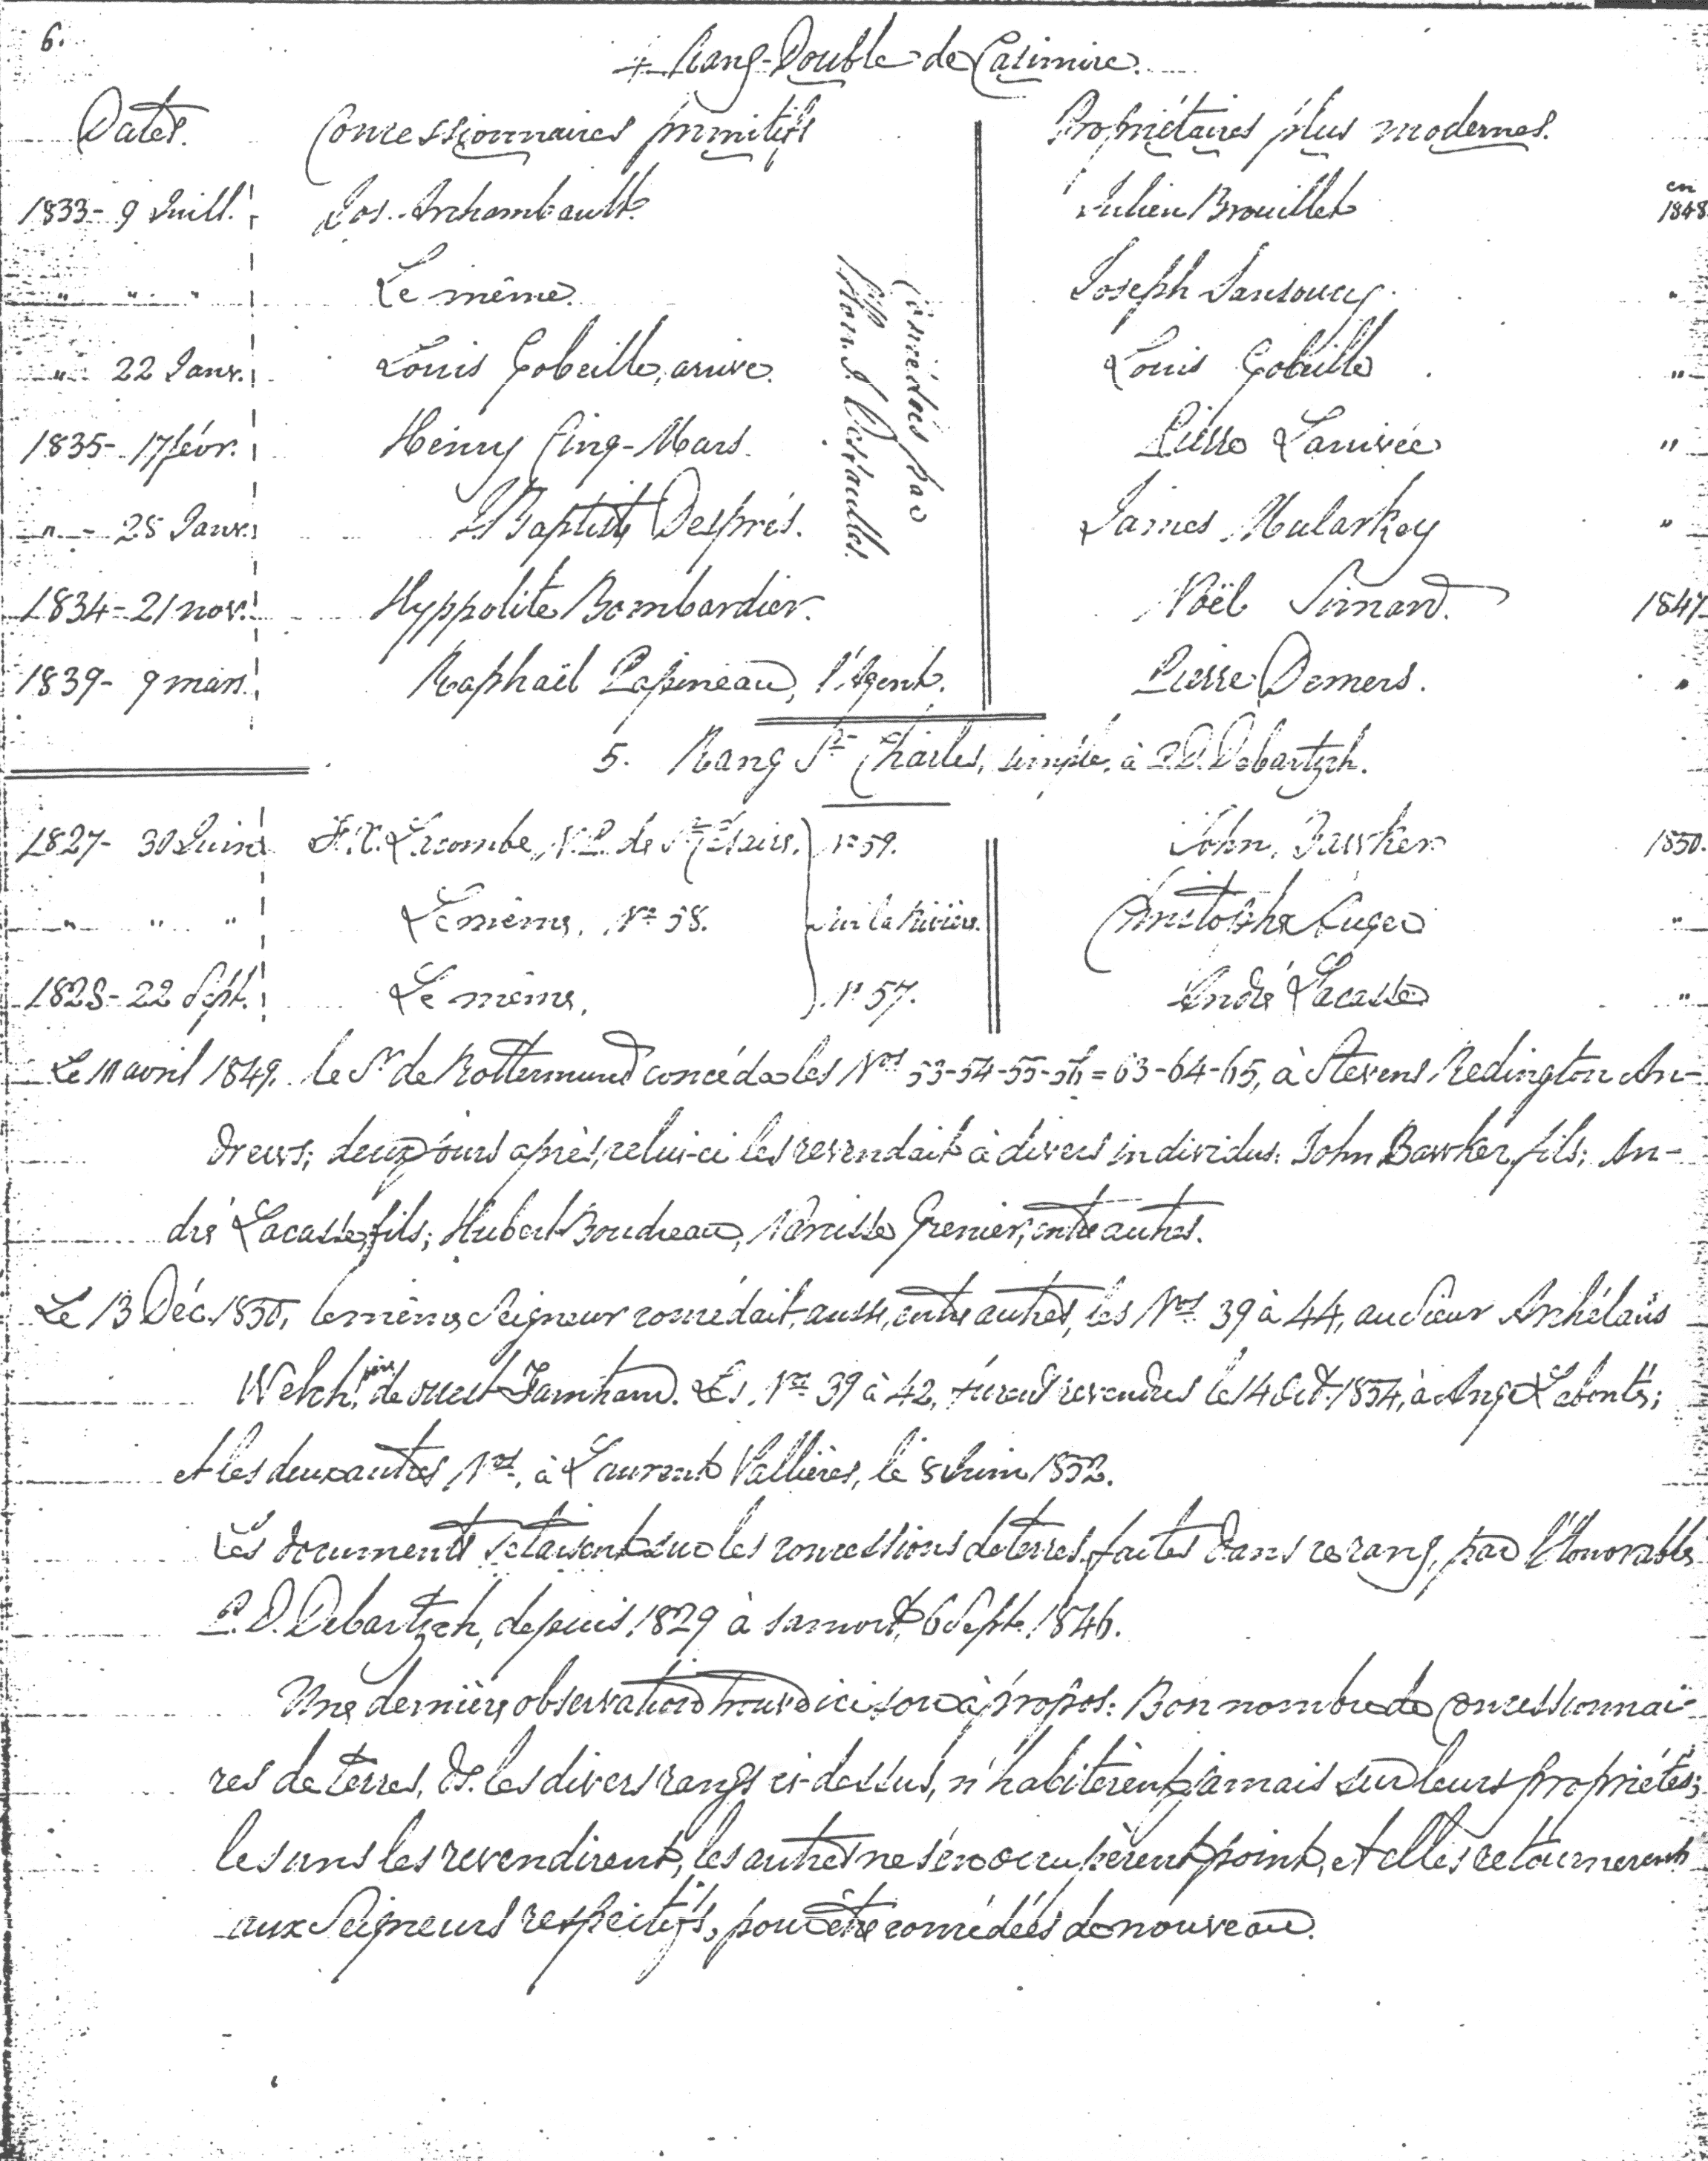 6.
4. Rang-Double de Casimire.
Dates. Concessionnaires primitifs Propriétaires plus modernes.
1833- 9 Juill. Jos. Archambault. Julien Brouillet en 1848
" " " Le même. Joseph Sansoucy. "
" 22 Janv. Louis Gobeille, Louis Gobeille "
1835- 17 févr. Henry Cinq-Mars. Pierre Larrivée "
" - 28 Janv. J Baptiste Després. James Mularkey "
1834- 21 nov. Hyppolite Bombardier. Noël Simard. 1847
1839- 9 mars. Raphaël Papineau, l'Agent. Pierre Demers. "
Concédées par
l'Hon. J. Dessaulles.
5. Rang St Charles, simple, à P. D. Debartzch.
1827- 30 Juin F. X. Lacombe, N. P. de St No 59. John Bawker 1850.
" " " Le même, No 58. sur la Rivière. Christophe Auger "
1828- 22 Sept. Le même, No 57. André Lacasse "
Le 11 avril 1849, le Sr de Rottermund concéda les Nos 53-54-55-56=63-64-65, à Stevens Redington An-
drews; deux jours après, celui-ci les revendait à divers individus: John Bawker, fils; An-
dré Lacasse, fils; Hubert Boudreau, Narcisse Grenier, entre autres.
Le 13 Déc. 1850, le même Seigneur concédait, aussi, entre autres, les Nos 39 à 44, au Sieur Arkélaüs
Welch, père de ouest Farnham. Les Nos 39 à 42, furent revendus le 14 Oct. 1854, à Ange Labonté;
et les deux autres Nos, à Laurent Vallières, le 8 Juin 1852.
Les documents se taisent sur les concessions de terres faites dans ce rang, par l'Honorable
P. D. Debartzch, depuis 1829 à sa mort, 6 Sept. 1846.
Une dernière observation trouve ici son à propos: Bon nombre de Concessionnai-
res de terres, ds. les divers rangs ci-dessus, n'habitèrent jamais sur leurs propriétés;
les uns les revendirent, les autres ne s'en occupèrent point, et elles retournerent
aux Seigneurs respectifs, pour être concédées de nouveau.